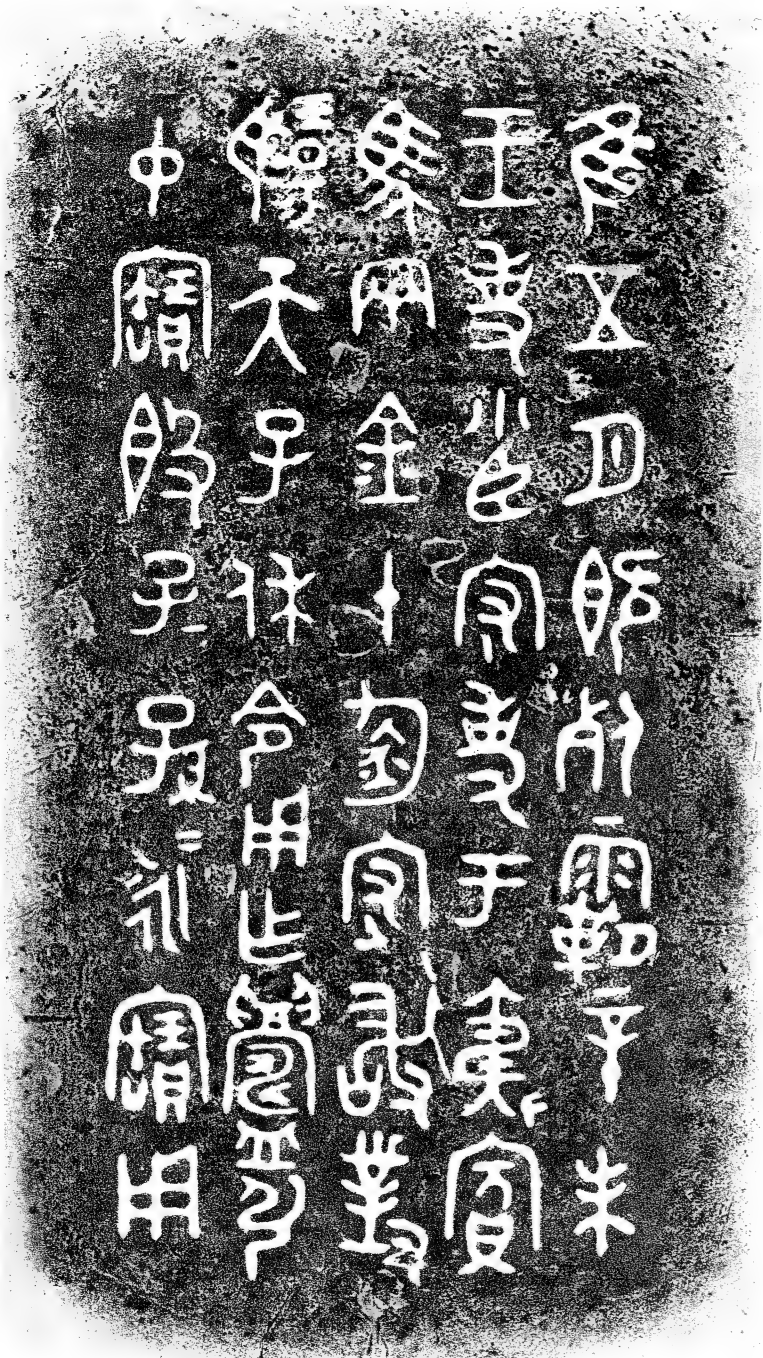 隹五月既死霸辛未
王事小臣守事于夷賓
馬兩金十鈞守敢對
揚天子休令用乍鑄引
中寶𣪘子=孫=永寶用